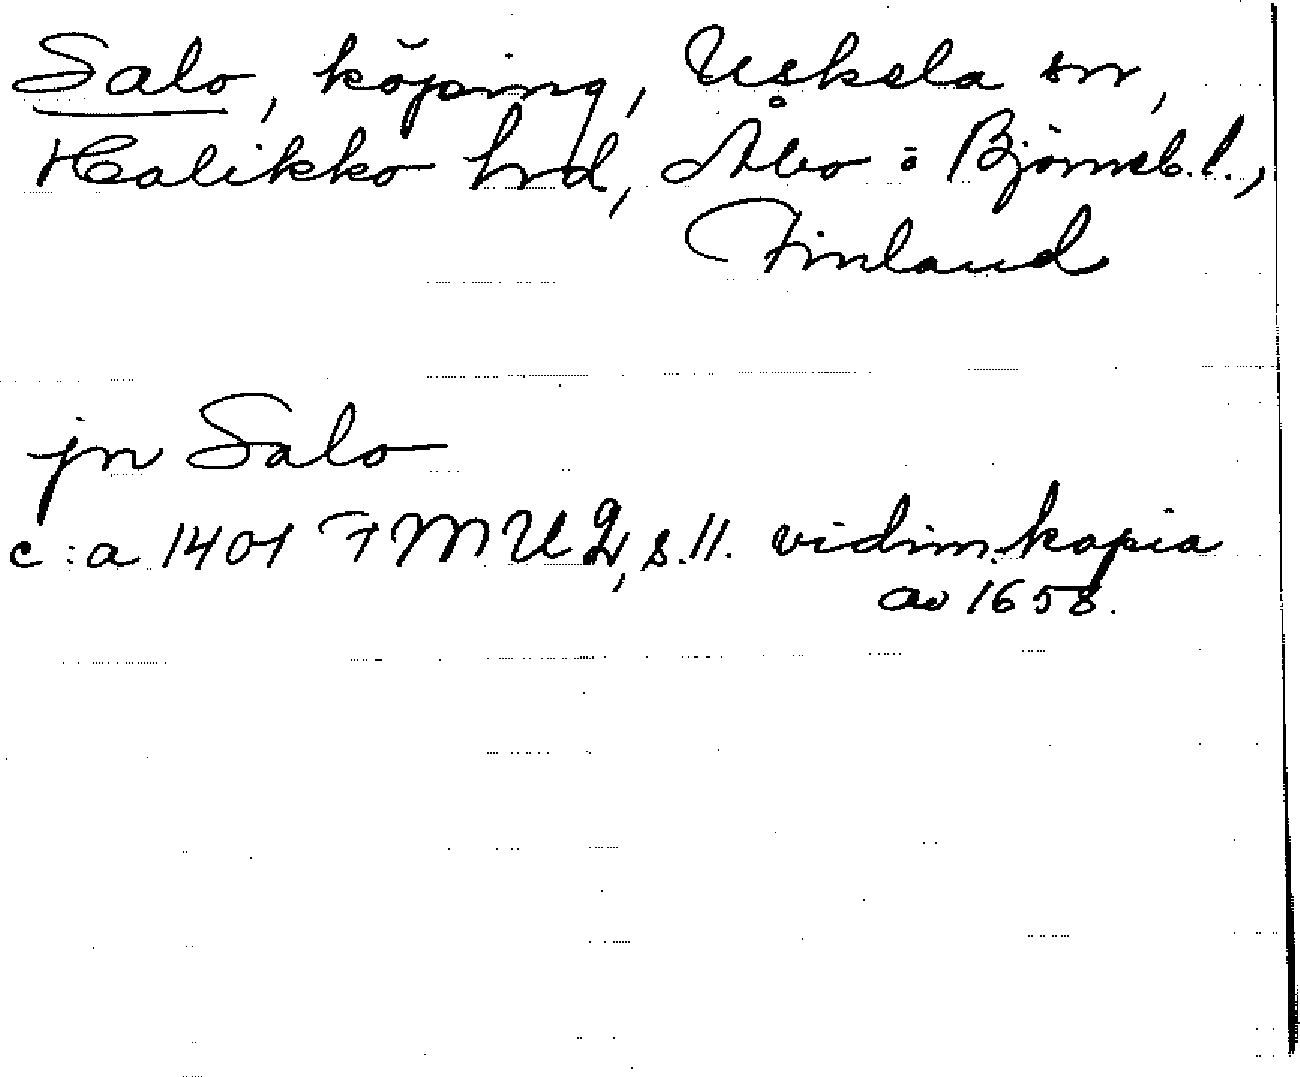 Salo, köping, Uskela sn,
Halikko hrd, Åbo o Björneb.l.,
Finland
jn Salo
c:a 1401 FMU 2, s.11. vidim. kopia
av 1658.